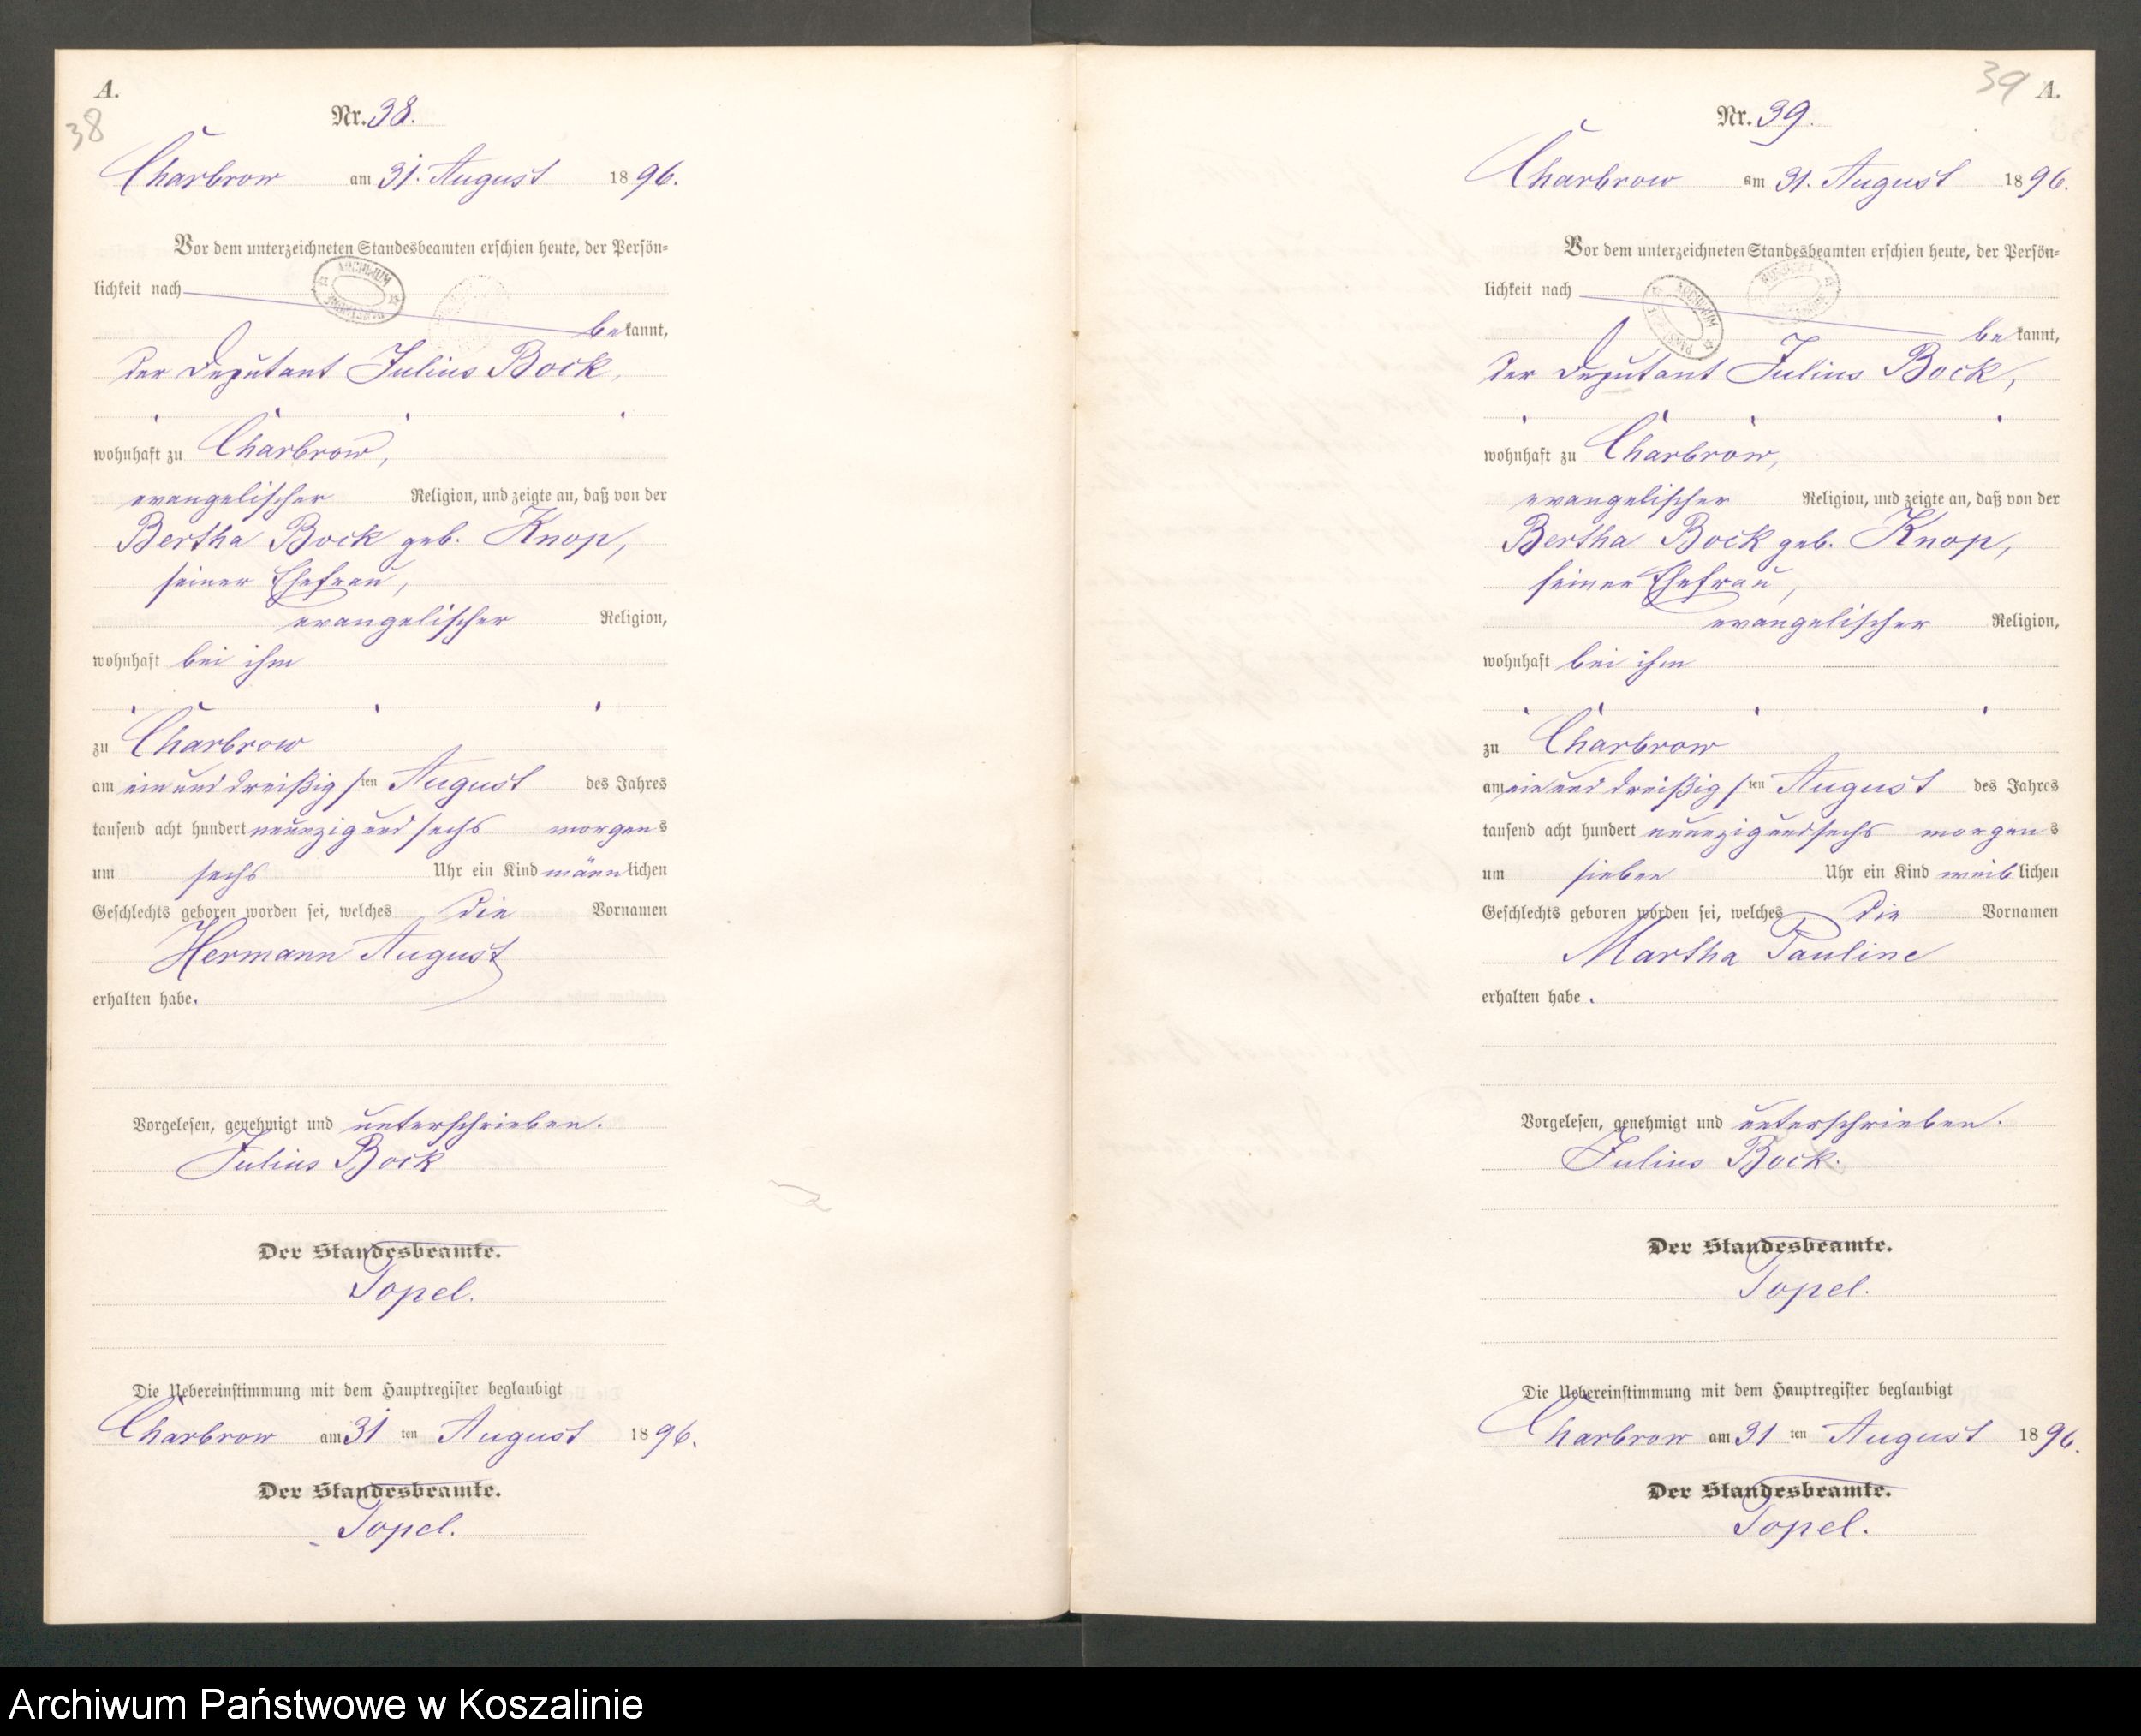 A.
38
Nr. 38.
Charbrow am 31. August 1896.
Vor dem unterzeichneten Standesbeamten erschien heute, der Persön=
lichkeit nach
bekannt,
der Deputant Julius Bock,
wohnhaft zu Charbrow,
evangelischer Religion, und zeigte an, daß von der
Bertha Bock geb. Knop,
seiner Ehefrau,
evangelischer Religion,
wohnhaft bei ihm
zu Charbrow
am ein und dreißigsten August des Jahres
tausend acht hundert neunzig und sechs morgens
um sechs Uhr ein Kind männlichen
Geschlechts geboren worden sei, welches die Vornamen
Hermann August
erhalten habe.
Vorgelesen, genehmigt und unterschrieben.
Julius Bock
Der Standesbeamte.
Topel.
Die Uebereinstimmung mit dem Hauptregister beglaubigt
Charbrow am 31 ten August 1896.
Der Standesbeamte.
Topel.
39 A.
Nr. 39.
Charbrow am 31. August 1896.
Vor dem unterzeichneten Standesbeamten erschien heute, der Persön=
lichkeit nach
bekannt,
der Deputant Julius Bock,
wohnhaft zu Charbrow,
evangelischer Religion, und zeigte an, daß von der
Bertha Bock geb. Knop,
seiner Ehefrau,
evangelischer Religion,
wohnhaft bei ihm
zu Charbrow
am ein und dreißigsten August des Jahres
tausend acht hundert neunzig und sechs morgens
um sieben Uhr ein Kind weiblichen
Geschlechts geboren worden sei, welches die Vornamen
Martha Pauline
erhalten habe.
Vorgelesen, genehmigt und unterschrieben.
Julius Bock.
Der Standesbeamte.
Topel.
Die Uebereinstimmung mit dem Hauptregister beglaubigt
Charbrow am 31 ten August 1896.
Der Standesbeamte.
Topel.
Archiwum Państwowe w Koszalinie